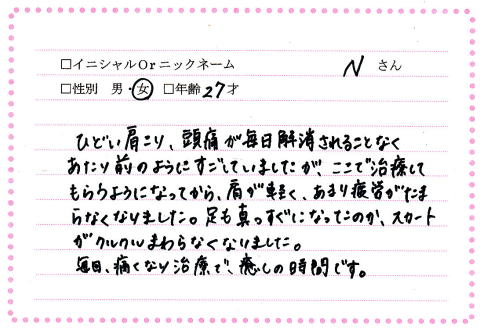 □イニシャルOrニックネーム N さん
□性別 男・女 □年齢27才
ひどい肩こり、頭痛が毎日解消されることなく
あたり前のようにすごしていましたが、ここで治療して
もらうようになってから、肩が軽く、あまり疲労がたま
らなくなりました。足も真っすぐになったのか、スカート
がクルクルまわらなくなりました。
毎回、痛くない治療で、癒しの時間です。